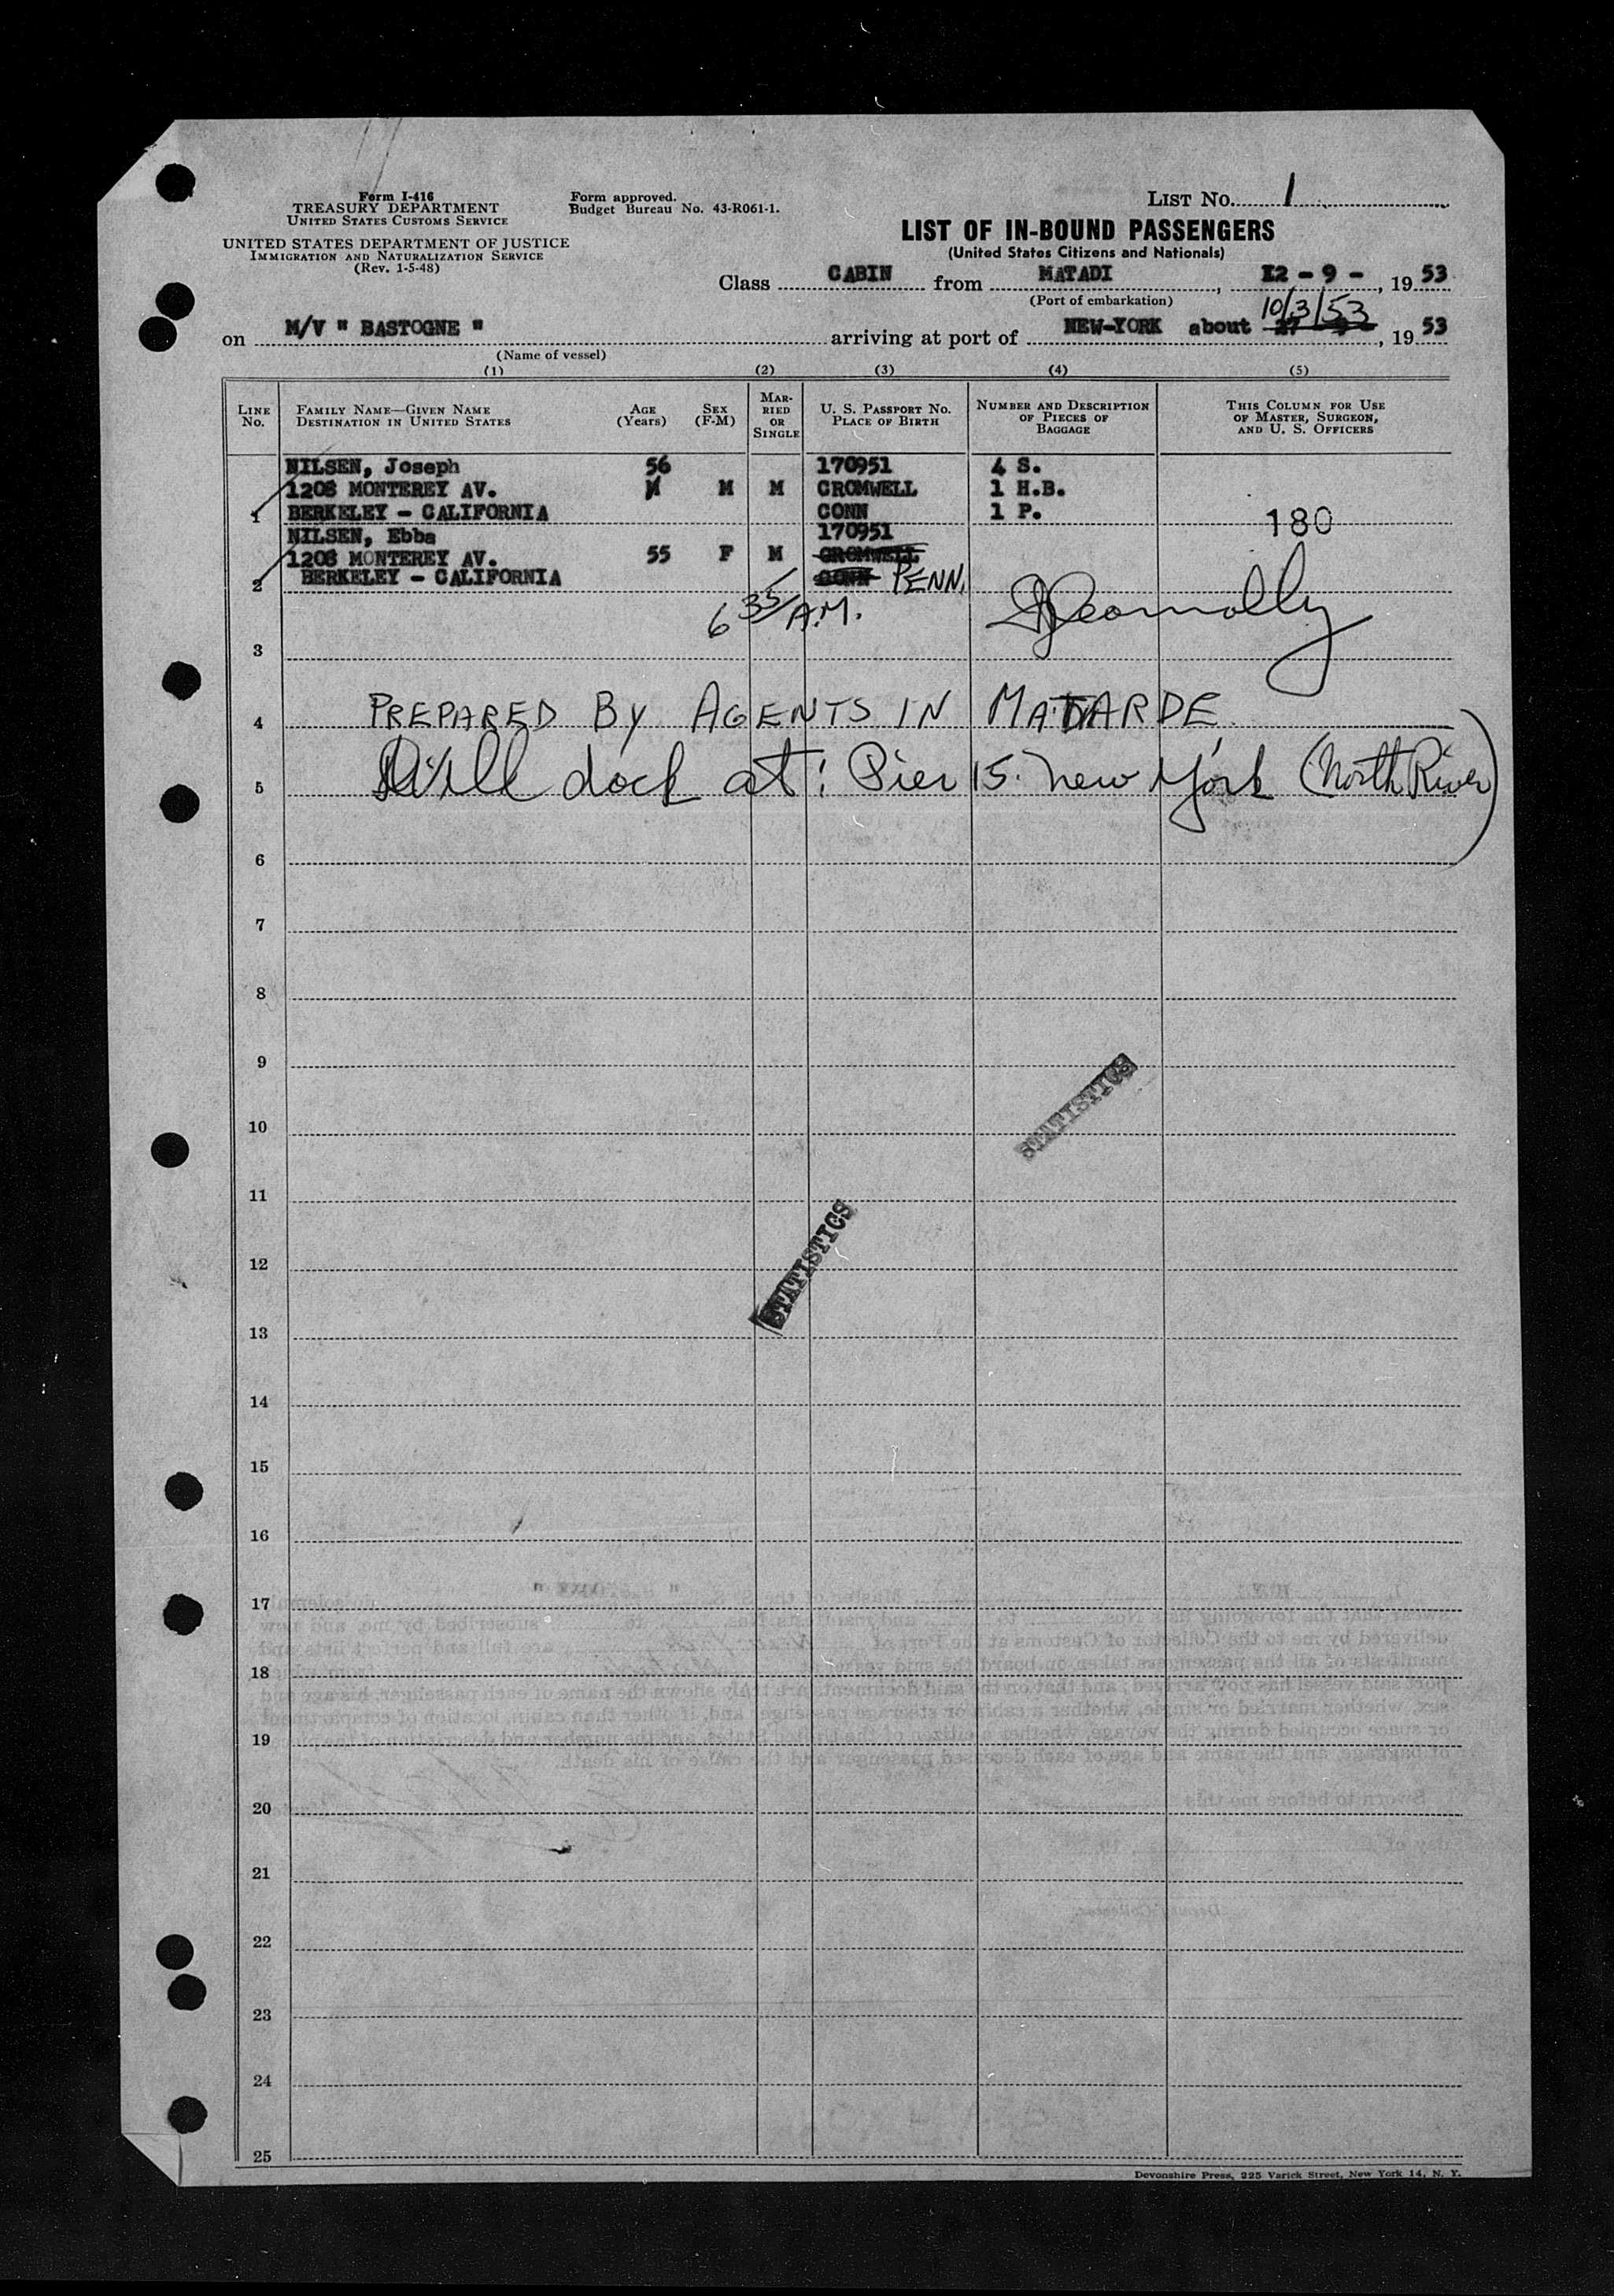 Form I-416
TREASURY DEPARTMENT
UNITED STATES CUSTOMS SERVICE
UNITED STATES DEPARTMENT OF JUSTICE
IMMIGRATION AND NATURALIZATION SERVICE
(Rev. 1-5-48)
Form approved.
Budget Bureau No. 43-R061-1.
LIST NO. 1
LIST OF IN-BOUND PASSENGERS
(United States Citizens and Nationals)
Class CABIN from MATADI, I2 - 9 -, 19 53
(Port of embarkation)
10/3/53
on M/V " BASTOGNE " arriving at port of NEW-YORK about 27 9, 19 53
(Name of vessel)
(1) (2) (3) (4) (5)
LINE NO.
FAMILY NAME—GIVEN NAME
DESTINATION IN UNITED STATES
AGE (Years)
SEX (F-M)
MARRIED OR SINGLE
U. S. PASSPORT NO.
PLACE OF BIRTH
NUMBER AND DESCRIPTION OF PIECES OF BAGGAGE
THIS COLUMN FOR USE OF MASTER, SURGEON, AND U. S. OFFICERS
NILSEN, Joseph 56 170951 4 S.
1208 MONTEREY AV. M M M CROMWELL 1 H.B.
1 BERKELEY - CALIFORNIA CONN 1 P. 180
NILSEN, Ebba 170951
1208 MONTEREY AV. 55 F M CROMWELL
2 BERKELEY - CALIFORNIA CONN PENN.
6 35/ A.M.
3
4 PREPARED BY AGENTS IN MATARDE
5 Will dock at: Pier 15. New York (North River)
6
7
8
9
STATISTICS
10
11
STATISTICS
12
13
14
15
16
17
18
19
20
21
22
23
24
25
Devonshire Press, 225 Varick Street, New York 14, N. Y.